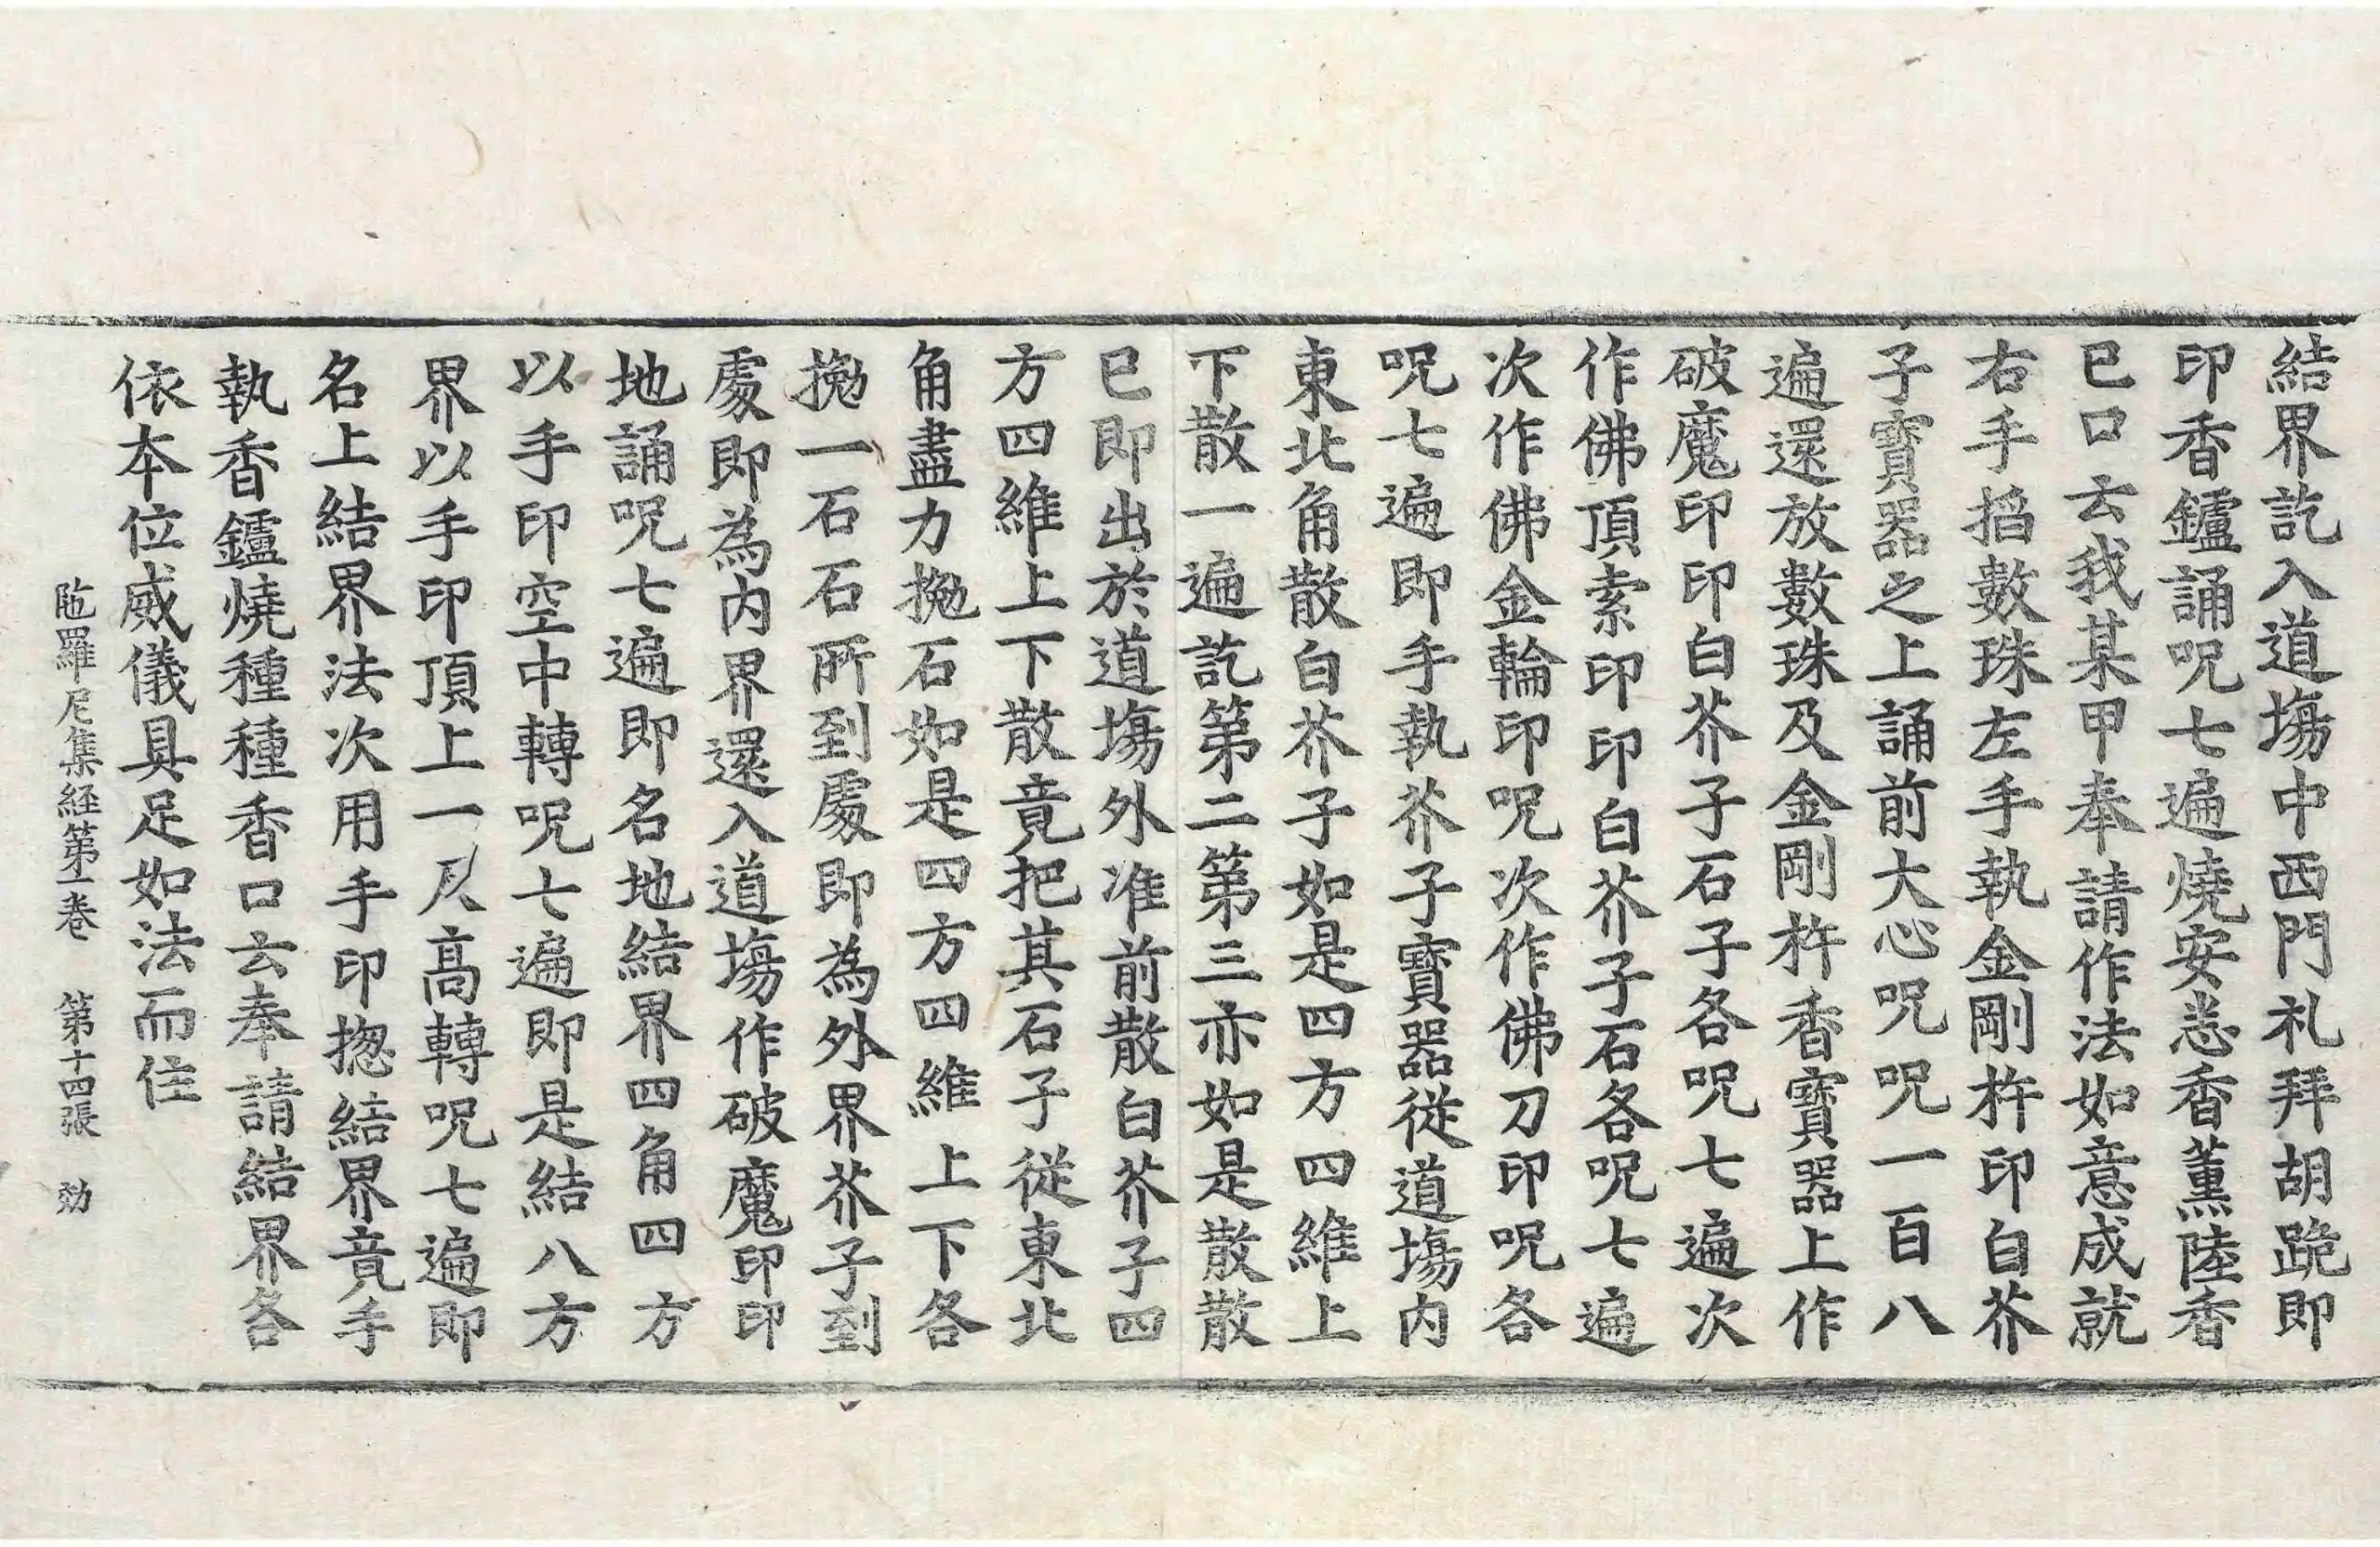 結界訖入道場中西門礼拜胡跪即
印香鑪誦呪七遍燒安悉香薰陸香
已口云我某甲奉請作法如意成就
右手掐數珠左手執金剛杵印白芥
子寶器之上誦前大心呪呪一百八
遍還放數珠及金剛杵香寶器上作
破魔印印白芥子石子各呪七遍次
作佛頂索印印白芥子石各呪七遍
次作佛金輪印呪次作佛刀印呪各
呪七遍即手執芥子寶器從道場内
東北角散白芥子如是四方四維上
下散一遍訖第二第三亦如是散散
已即出於道場外准前散白芥子四
方四維上下散竟把其石子從東北
角盡力拋石如是四方四維上下各
拋一石石所到處即為外界芥子到
處即為内界還入道場作破魔印印
地誦呪七遍即名地結界四角四方
以手印空中轉呪七遍即是結八方
界以手印頂上一尺高轉呪七遍即
名上結界法次用手印揔結界竟手
執香鑪燒種種香口云奉請結界各
依本位威儀具足如法而住
陁羅尼集経第一卷 第十四張 効